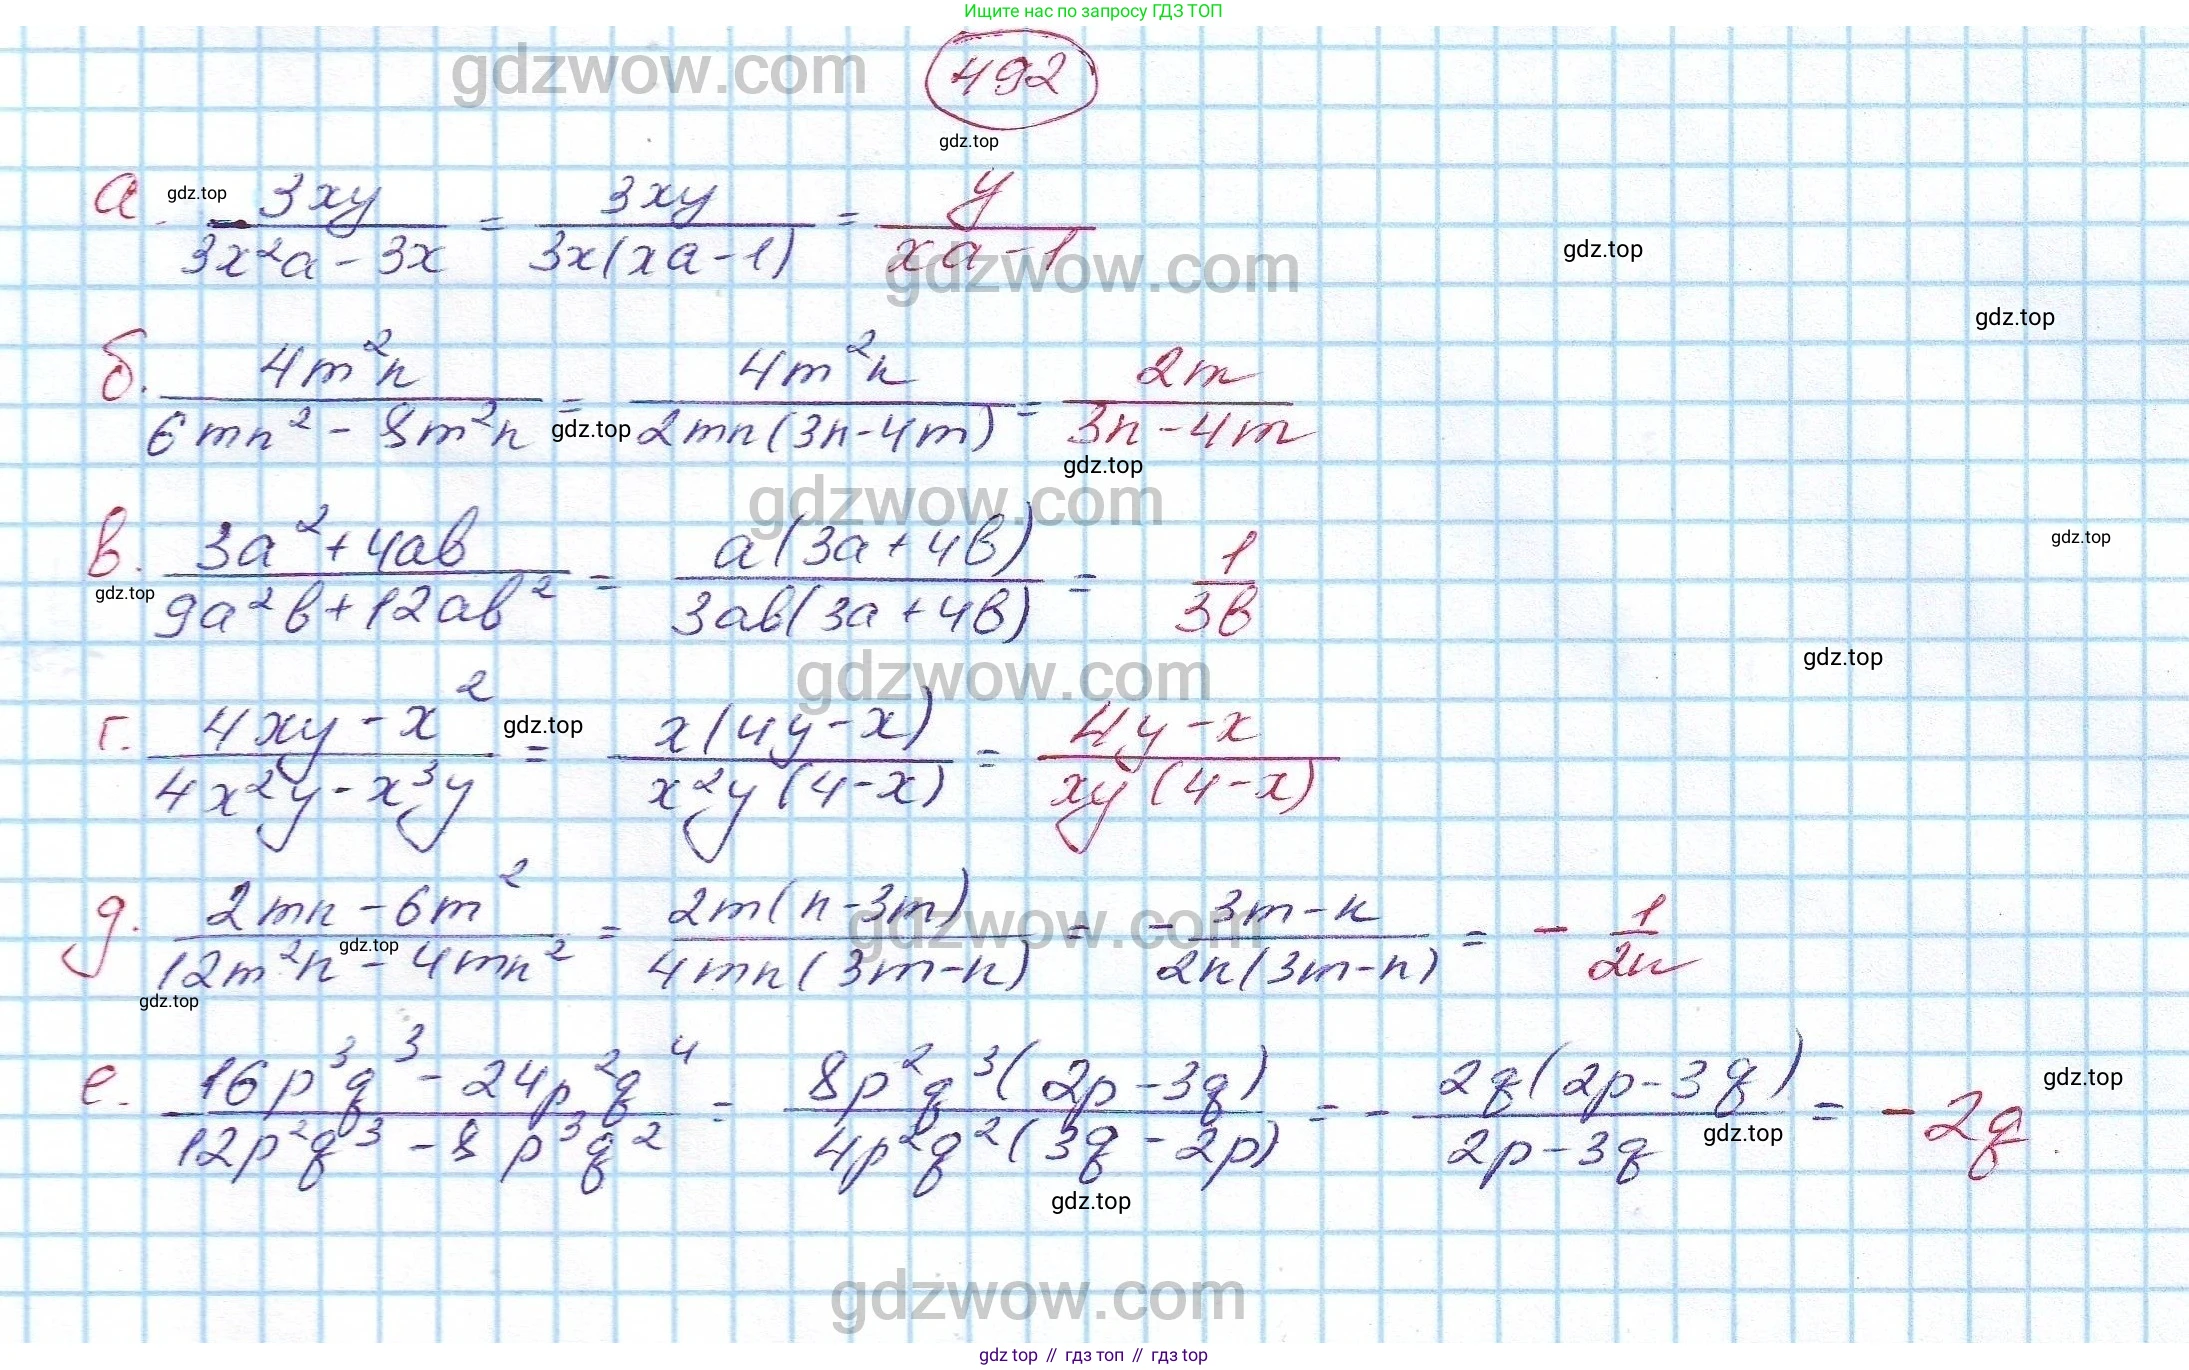 Ищите нас по запросу ГДЗ ТОП
gdzwow.com
492
gdz.top
а. gdz.top 3xy / (3x²a - 3x) = 3xy / (3x(xa - 1)) = y / (xa - 1)
gdzwow.com
gdz.top
gdz.top
б. 4m²n / (6mn² - 8m²n) = 4m²n / (2mn(3n - 4m)) = 2m / (3n - 4m)
gdz.top
gdz.top
gdzwow.com
в. (3a² + 4ab) / (9a²b + 12ab²) = a(3a + 4b) / (3ab(3a + 4b)) = 1 / (3b)
gdz.top
gdz.top
gdzwow.com
gdz.top
г. (4xy - x²) / (4x²y - x³y) = x(4y - x) / (x²y(4 - x)) = (4y - x) / (xy(4 - x))
gdz.top
д. (2mn - 6m²) / (12m²n - 4mn²) = 2m(n - 3m) / (4mn(3m - n)) = - (3m - n) / (2n(3m - n)) = - 1 / (2n)
gdzwow.com
gdz.top
gdz.top
е. (16p³q³ - 24p²q⁴) / (12p²q³ - 8p³q²) = 8p²q³(2p - 3q) / (4p²q²(3q - 2p)) = - 2q(2p - 3q) / (2p - 3q) = - 2q.
gdz.top
gdz.top
gdz.top
gdzwow.com
gdz top // гдз топ // гдз top